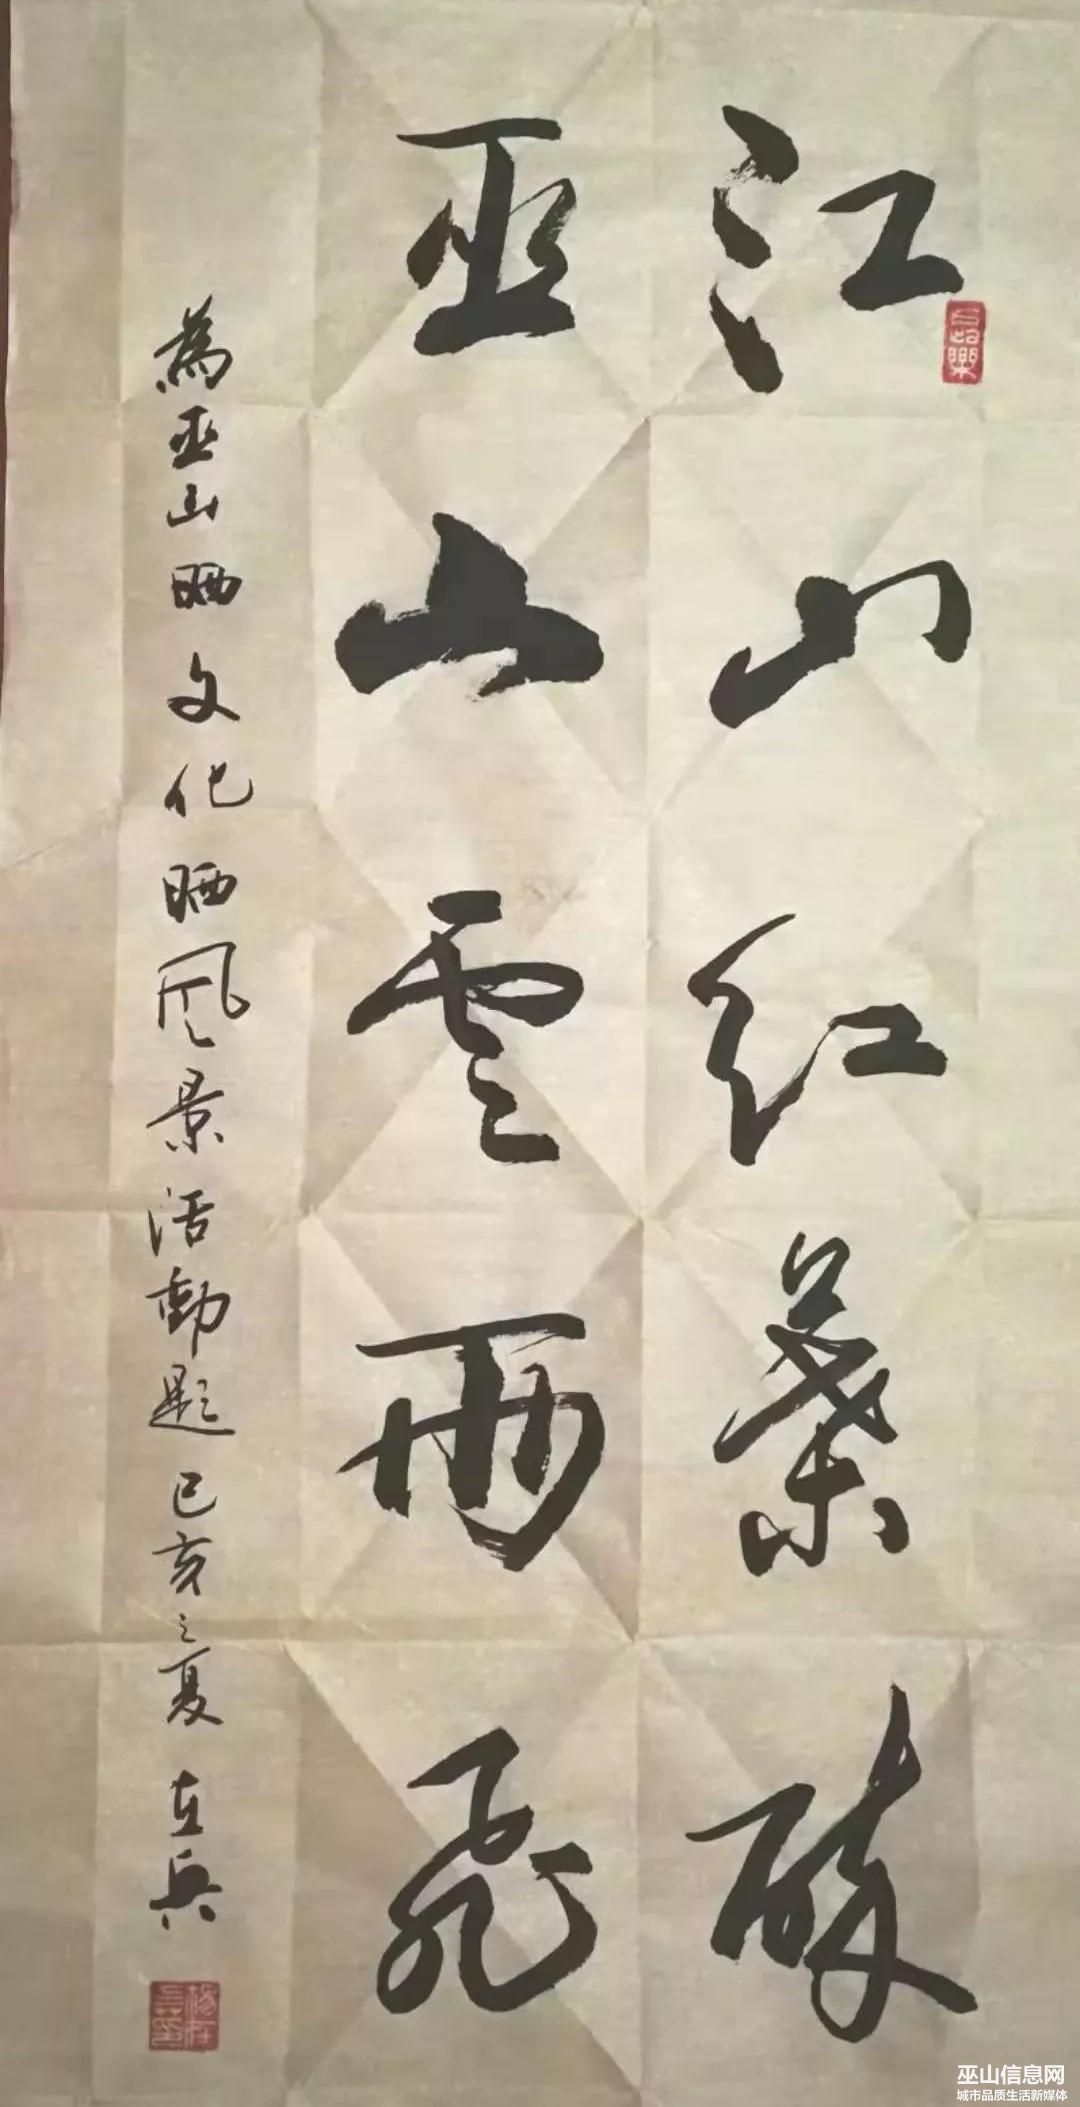 江山红葉醉
巫山雲雨飛
為巫山晒文化晒風景活動题 己亥之夏 在兵
巫山信息网
城市品质生活新媒体